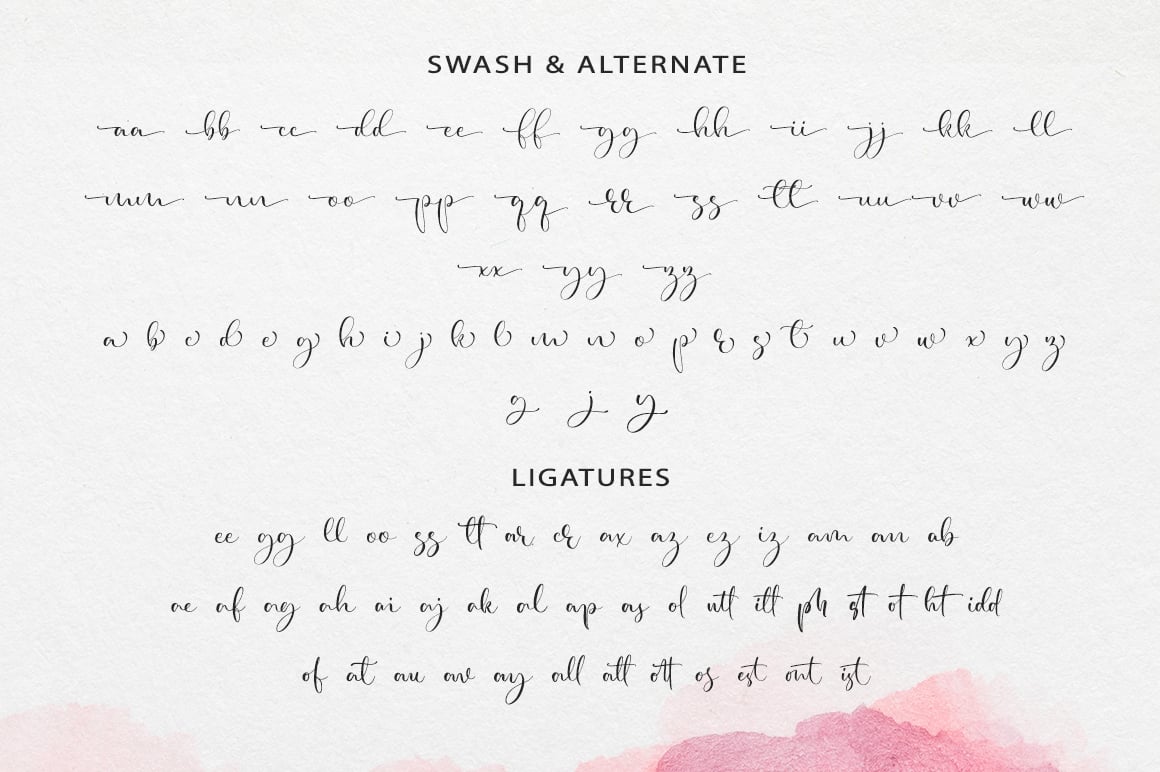 SWASH & ALTERNATE
aa bb cc dd ee ff gg hh ii jj kk ll
mm nn oo pp qq rr ss tt uu vv ww
xx yy zz
a b c d e g h i j k l m n o p r s t u v w x y z
g j y
LIGATURES
ee gg ll oo ss tt ar er ax az ez iz am an ab
ae af ag ah ai aj ak al ap as ol utt itt ph st ot ht idd
of at au av ay all att ott os est ont ist